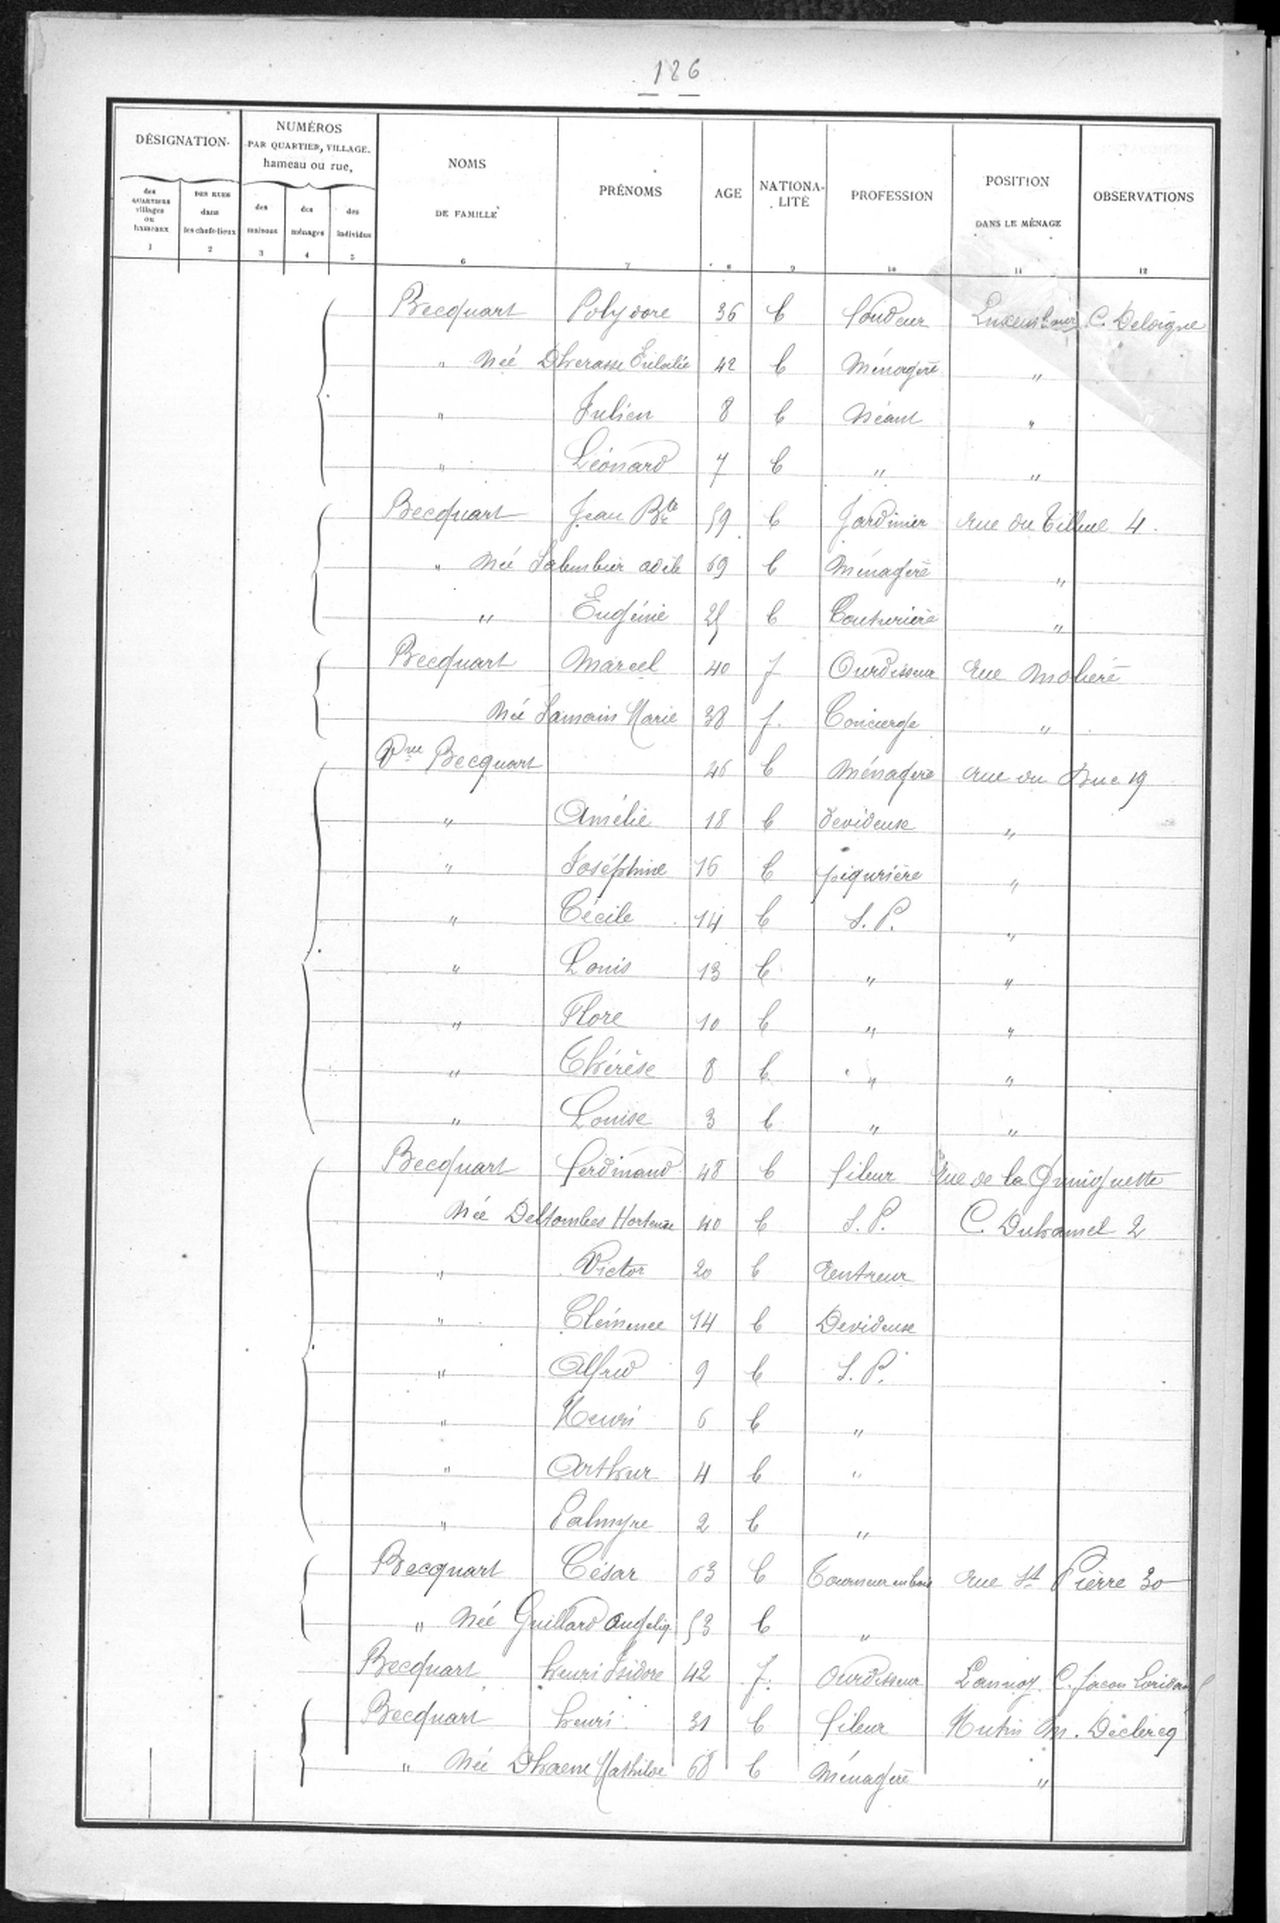 126
DÉSIGNATION
NUMÉROS PAR QUARTIER, VILLAGE, hameau ou rue,
NOMS DE FAMILLE
PRÉNOMS
AGE
NATIONALITÉ
PROFESSION
POSITION DANS LE MÉNAGE
OBSERVATIONS
des QUARTIERS villages ou hameaux
DES RUES dans les chefs-lieux
des maisons
des ménages
des individus
1 2 3 4 5 6 7 8 9 10 11 12
Becquart Polydore 36 C Soudeur C. Deloigne
" Née Eulalie 42 C Ménagère "
" Julien 8 C Néant "
" Léonard 7 C " "
Becquart Jean Bte 59 C Jardinier rue du Tilleul 4.
" Née Salembier Adèle 69 C Ménagère "
" Eugénie 25 C Couturière "
Becquart Marcel 40 f Ourdisseur rue Molière
Née Lamoin Marie 38 f. Concierge "
Vve Becquart 46 C Ménagère rue du Duc 19
" Amélie 18 C devideuse "
" Joséphine 16 C piqurière "
" Cécile 14 C S.P. "
" Louis 13 C " "
" Flore 10 C " "
" Thérèse 8 C " "
" Louise 3 C " "
Becquart Ferdinand 48 C fileur Rue de la Guinguette
Née Deltombes Hortense 40 C S.P. C. Duhamel 2
" Victor 20 C Rentreur
" Clémence 14 C Devideuse
" Alfred 9 C S.P.
" Henri 6 C "
" Arthur 4 C "
" Palmyre 2 C "
Becquart César 63 C Tourneur en bois rue St Pierre 30
" Née Guillard Angeliq 53 C "
Becquart henri Isidore 42 f. Ourdisseur Lannoy C.
Becquart henri 31 C fileur Hutin M. Declercq
" Née Dhaene Mathilde 68 C Ménagère "